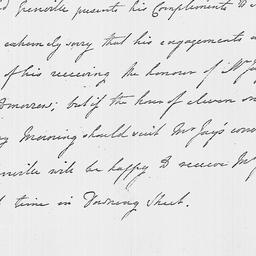 Grenville presents his Compliments to
extremely sorry that his engagements
of his receiving the honour of Mr Jay
tomorrow; but if the hour of eleven on
Morning should suit Mr Jay's conv
nville will be happy to receive Mr
time in Downing Street.